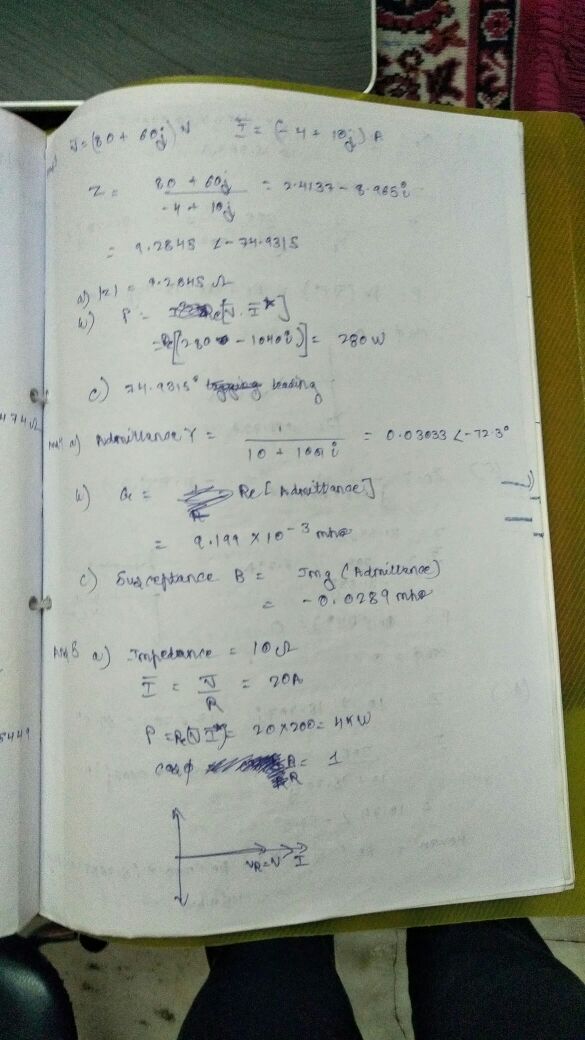 V̅ = (80 + 60j) V    I̅ = (-4 + 10j) A
Z = (80 + 60j) / (-4 + 10j) = 2.4137 - 8.965i
= 9.2845 ∠-74.9315
a) |Z| = 9.2845 Ω
b) P = Re[V̅. I̅*]
= Re[280 - 1040i] = 280 W
c) 74.9315° leading
a) Admittance Y = 1 / = 0.03033 ∠-72.3°
b) G = Re [Admittance]
= 9.199 × 10-3 mho
c) Susceptance B = Img (Admittance)
= -0.0289 mho
a) Impedance = 10Ω
I̅ = V̅/R = 20A
P = Re(V̅I̅*) = 20×200 = 4KW
cosφ = 1
VR=V    I̅
474Ω
5449